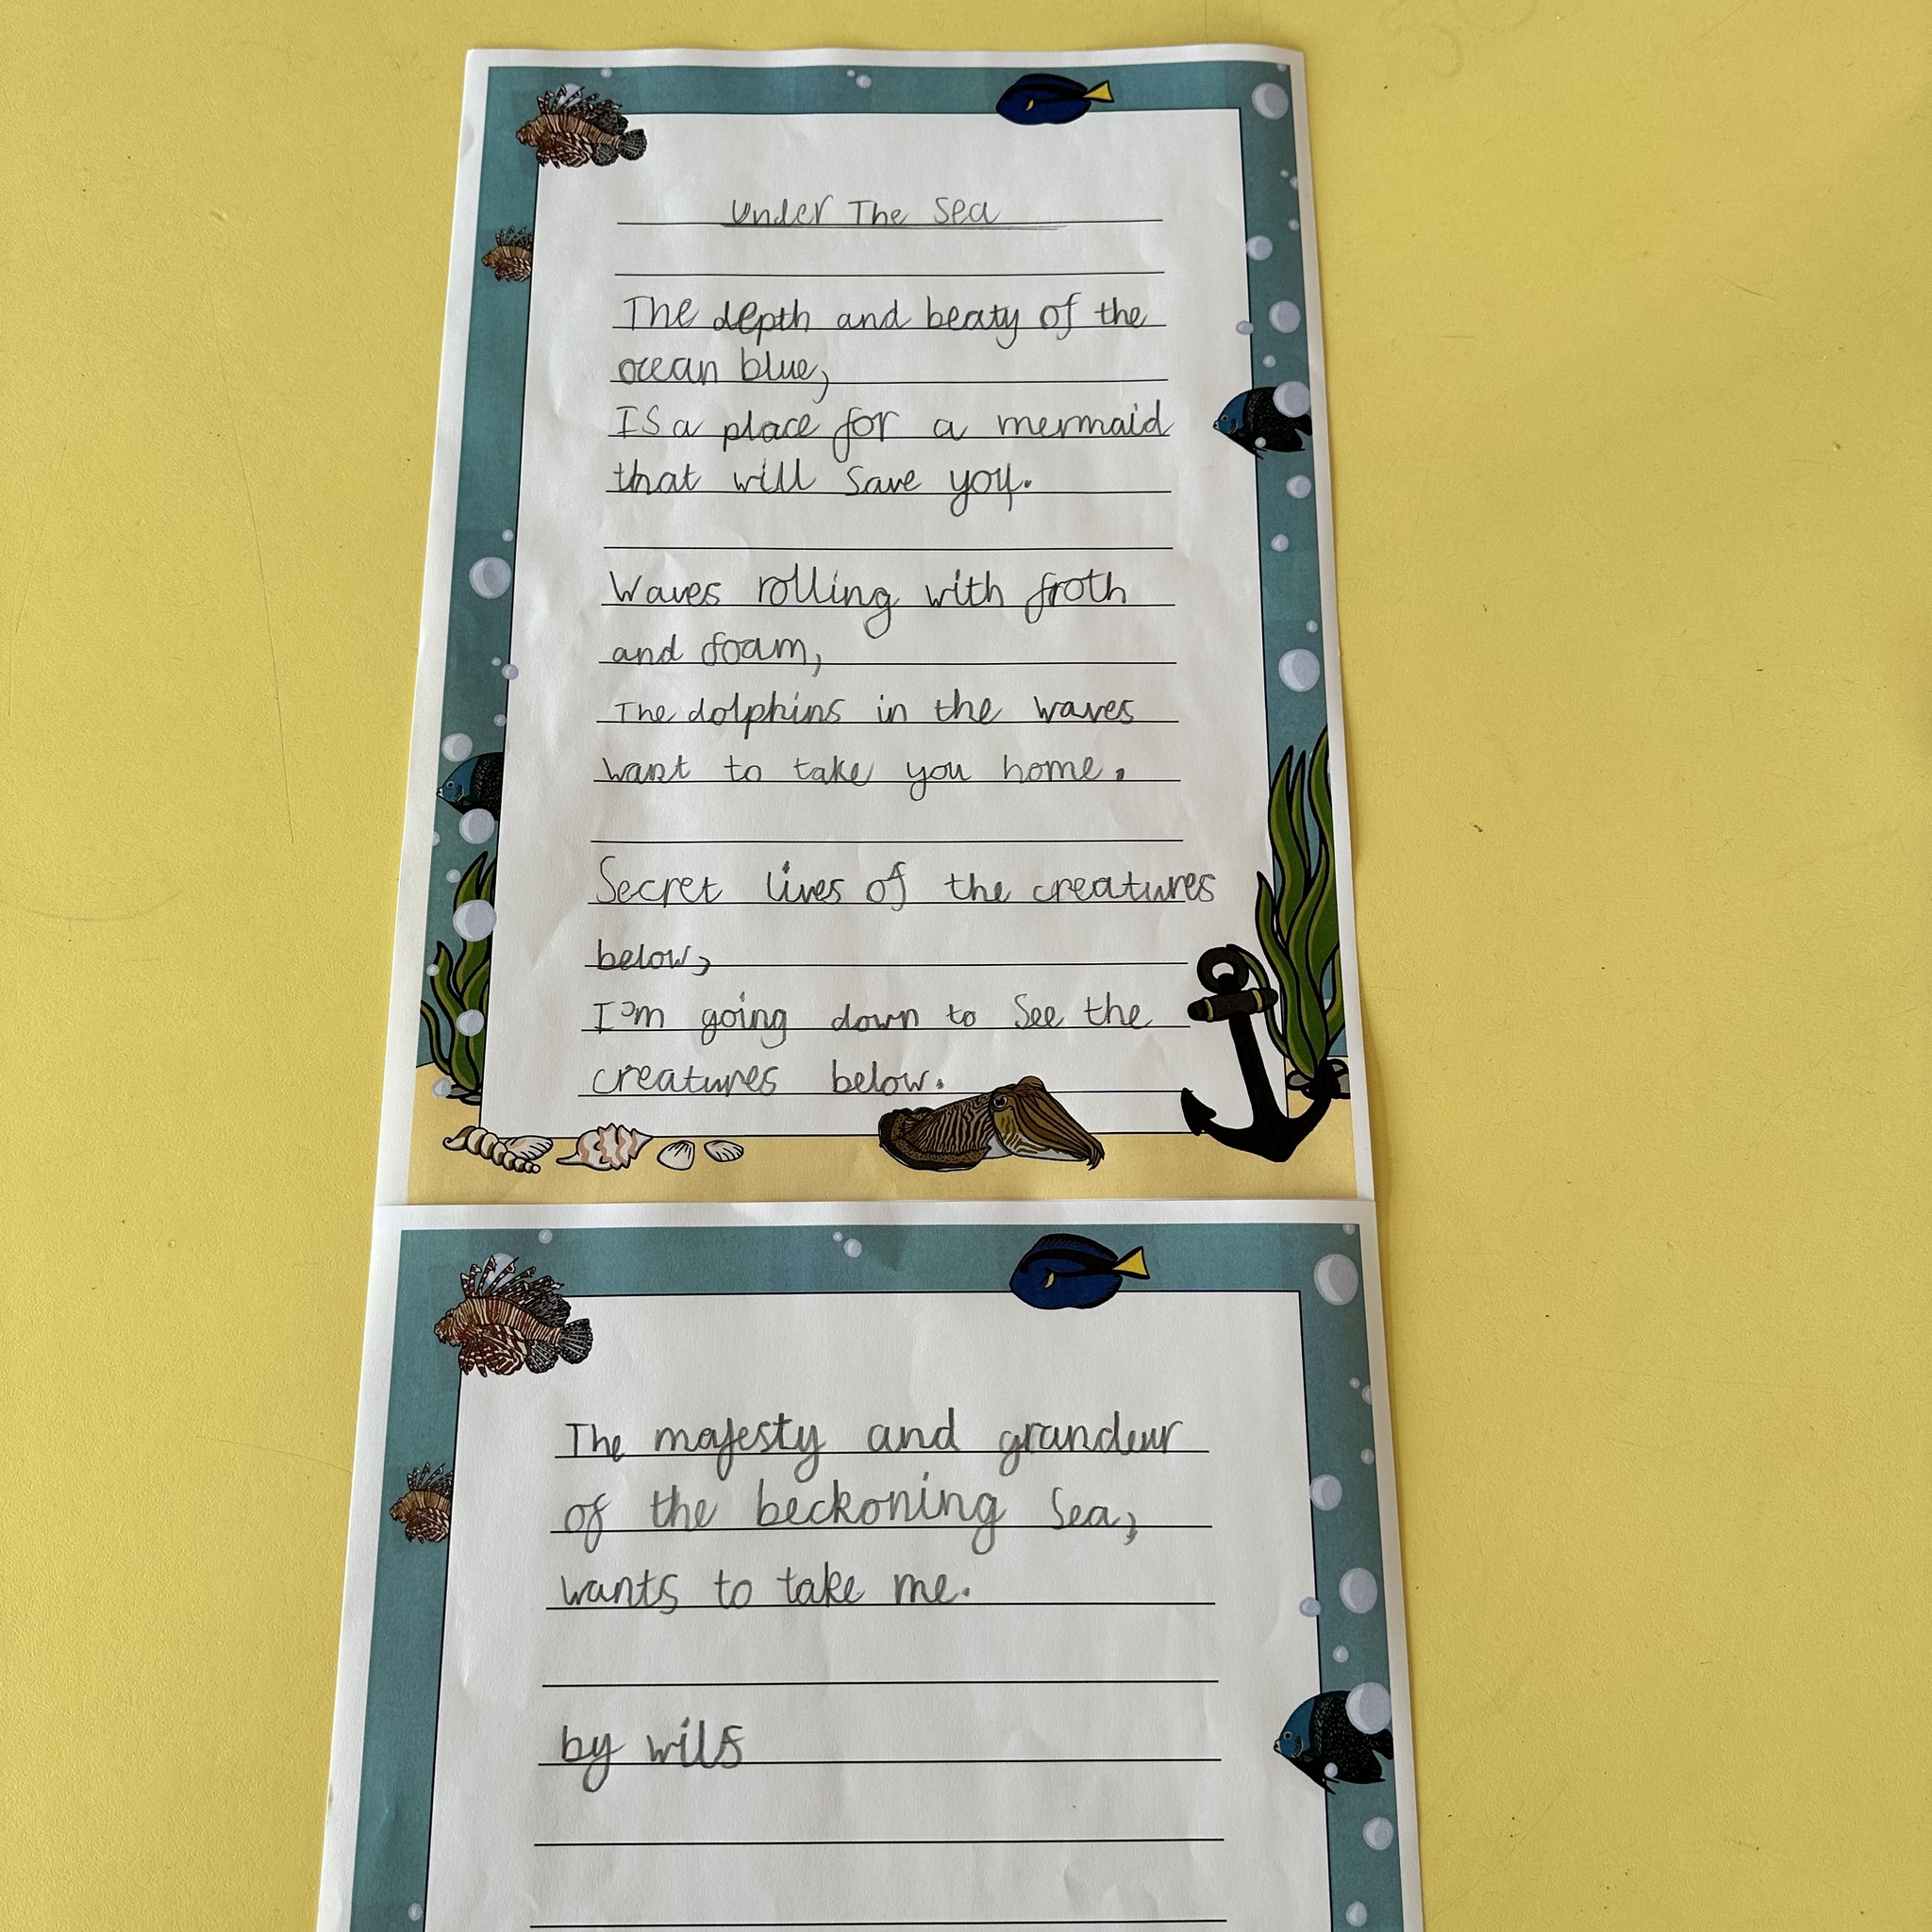 Under The Sea
The depth and beaty of the
ocean blue,
Is a place for a mermaid
that will save you.
Waves rolling with froth
and foam,
The dolphins in the waves
want to take you home.
Secret lives of the creatures
below,
I'm going down to see the
creatures below.
The majesty and grandeur
of the beckoning sea,
wants to take me.
by wilf